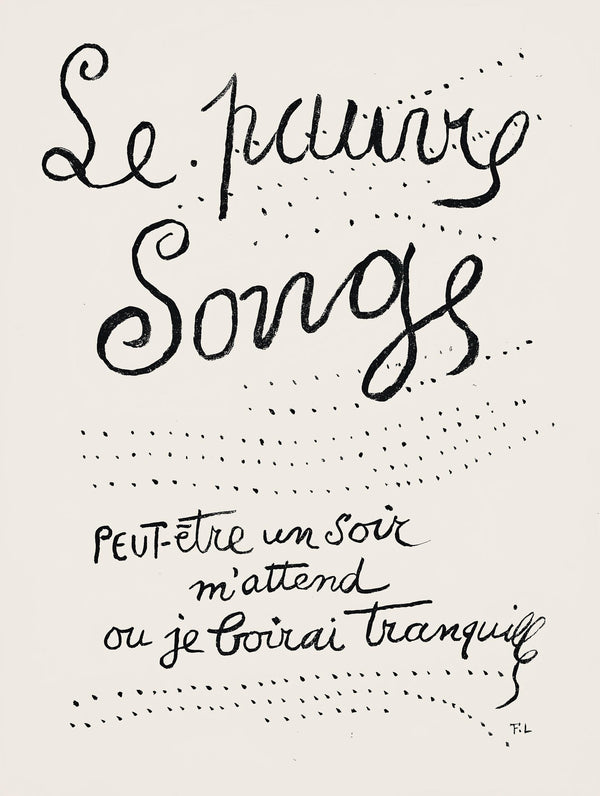 Le pauvre
Songe
PEUT-être un Soir
m'attend
ou je boirai Tranquille
F.L